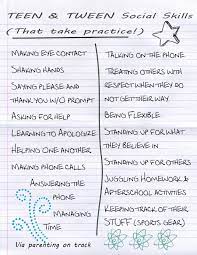 TEEN & TWEEN Social Skills
(That take practice!)
MAKING EYE CONTACT
SHAKING HANDS
SAYING PLEASE AND
THANK YOU W/O PROMPT
ASKING FOR HELP
LEARNING TO APOLOGIZE
HELPING ONE ANOTHER
MAKING PHONE CALLS
ANSWERING THE
PHONE
MANAGING
TIME
Via parenting on track
TALKING ON THE PHONE
TREATING OTHERS WITH
RESPECT WHEN THEY DO
NOT GET THEIR WAY.
BEING FLEXIBLE
STANDING UP FOR WHAT
THEY BELIEVE IN
STANDING UP FOR OTHERS
JUGGLING HOMEWORK &
AFTERSCHOOL ACTIVITIES
KEEPING TRACK OF THEIR
STUFF (SPORTS GEAR)